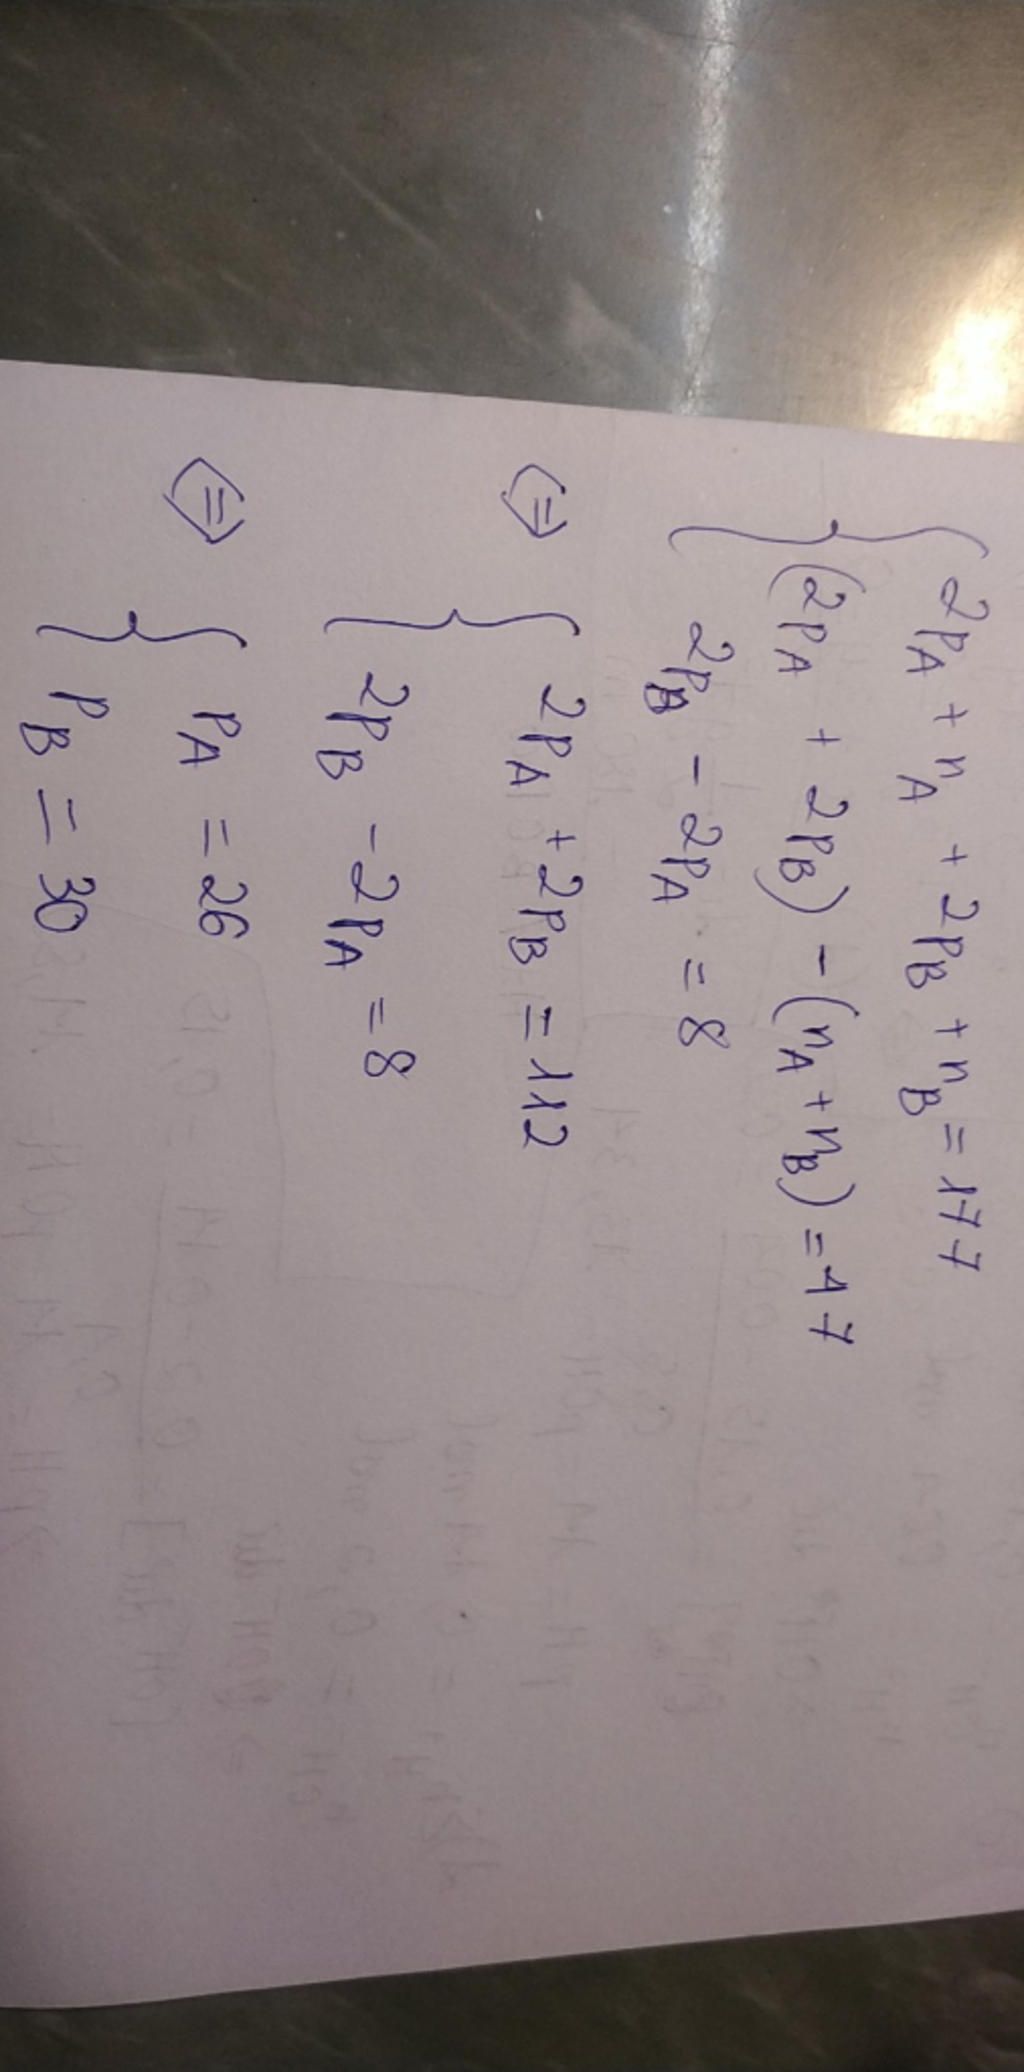 { 2P_A + n_A + 2P_B + n_B = 177
(2P_A + 2P_B) - (n_A + n_B) = 47
2P_B - 2P_A = 8
⇔ { 2P_A + 2P_B = 112
2P_B - 2P_A = 8
⇔ { P_A = 26
P_B = 30